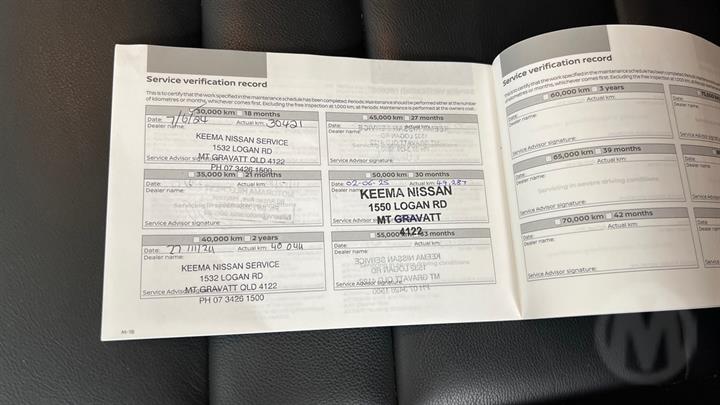 Service verification record
This is to certify that the work specified in the maintenance schedule has been completed. Periodic Maintenance should be performed either at the number
of kilometres or months, whichever comes first. Excluding the free inspection at 1,000 km, all Periodic Maintenance is performed at the owners cost.
30,000 km 18 months
Date: Actual km: 30421
Dealer name:
KEEMA NISSAN SERVICE
1532 LOGAN RD
MT GRAVATT QLD 4122
Service Advisor signature:
PH 07 3426 1500
45,000 km 27 months
Date: Actual km:
Dealer name:
Service Advisor signature:
35,000 km 21 months
Date: Actual km:
Dealer name:
Service Advisor signature:
50,000 km 30 months
Date: 02-06-25 Actual km:
Dealer name:
KEEMA NISSAN
1550 LOGAN RD
MT GRAVATT
4122
Service Advisor
40,000 km 2 years
Date: Actual km: 40 044
Dealer name:
KEEMA NISSAN SERVICE
1532 LOGAN RD
MT GRAVATT QLD 4122
Service Advisor
PH 07 3426 1500
55,000 km 33 months
Date: Actual km:
Dealer name:
Service Advisor signature:
M-18
Service verification record
This is to certify that the work specified in the maintenance schedule has been completed.
of kilometres or months, whichever comes first. Excluding the free inspection at 1,000 km, all Per
60,000 km 3 years
Date: Actual km:
Dealer name:
Service Advisor signature:
65,000 km 39 months
Date: Actual km:
Dealer name:
Servicing in severe driving conditions
Service Advisor signature:
70,000 km 42 months
Date: Actual km:
Dealer name:
Service Advisor signature:
M